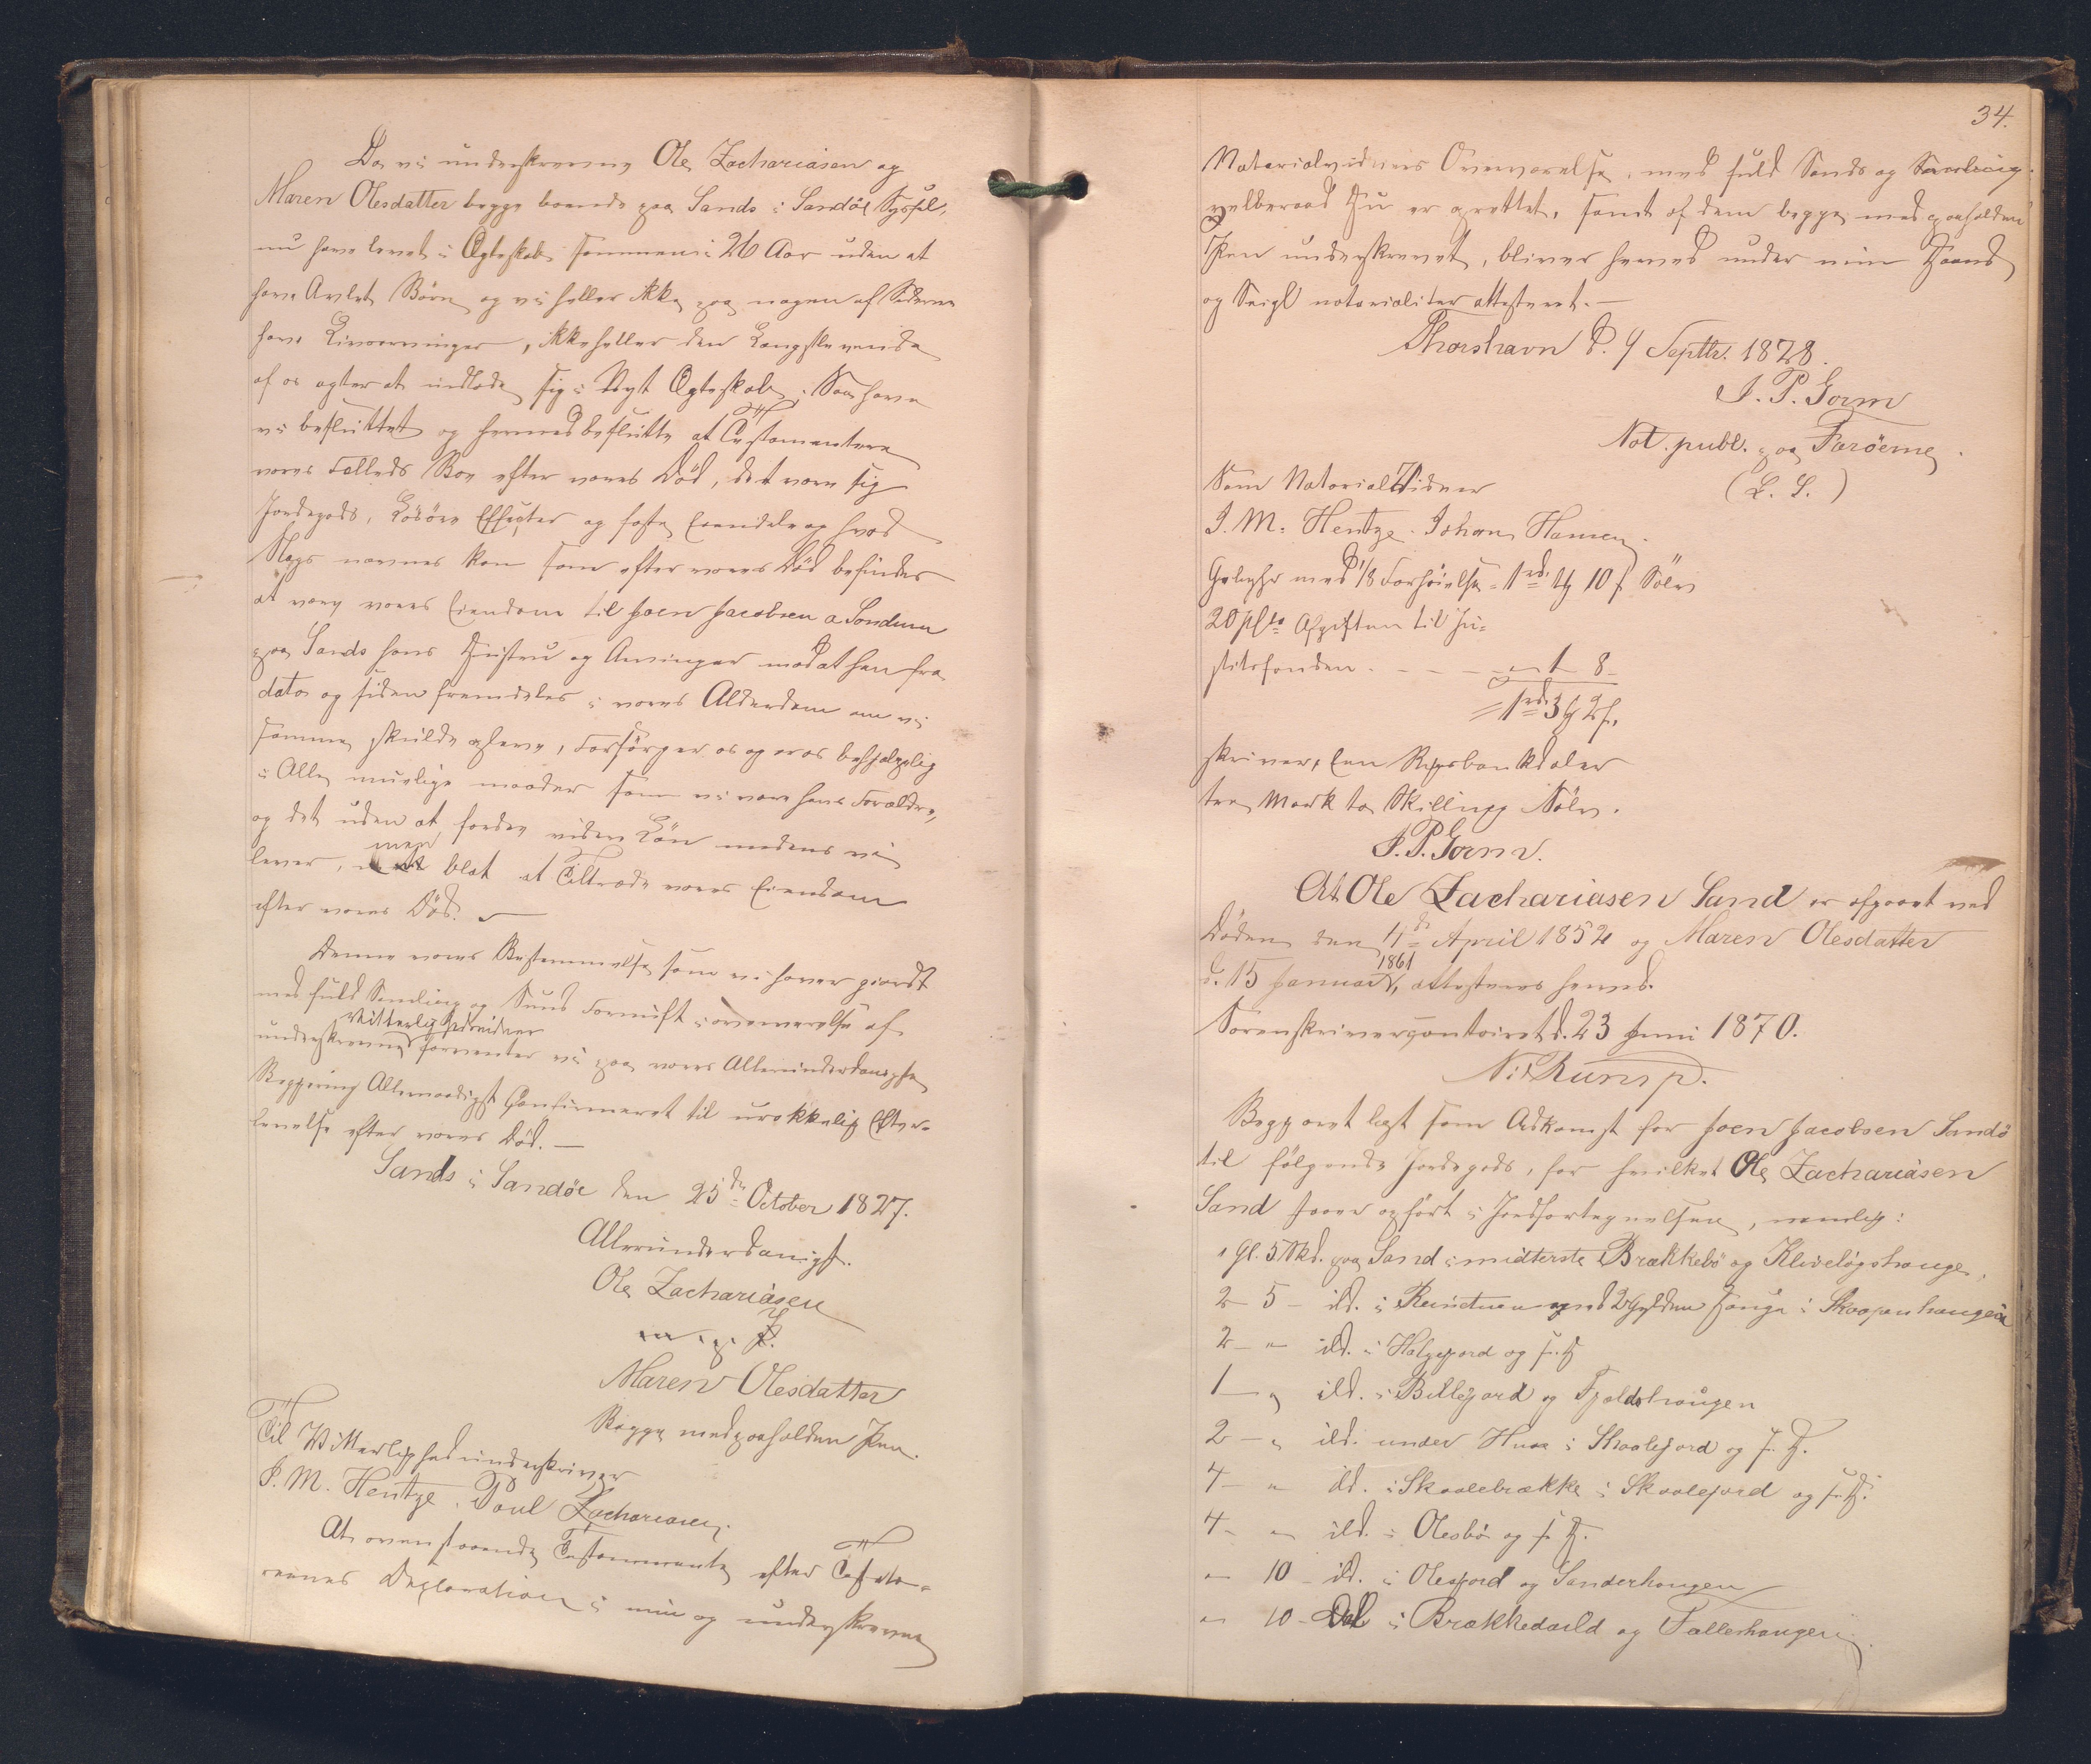 Da vi underskrevne Ole Zachariasen og
Maren Olesdatter begge boende paa Sands i Sandöe Syssel,
nu have levet i Ægteskab sammen i 26 Aar uden at
have Avlet Börn og vi heller ikke paa nogen af Siderne
have Livsarvinger, ikkeheller den Længstlevende
af os agter at indlade sig i Nyt Ægteskab; Saa have
vi besluttet og hermed beslutte at Testamentere
vores Fælleds Boe efter vores Död, det være sig
Jordegods, Lösöre Effecter og faste Eiendele og hvad
Slags nævnes kan som efter vores Död befindes
at være vores Eiendom til Joen Jacobsen a Sondum
paa Sands hans Hustru og Arvinger mod at han fra
dato og siden fremdeles i vores Alderdom om vi
samme skulde opleve, Forsörger os og er os behjelpelig
i Alle muelige maader som vi vare hans Forældre,
og det uden at fordre videre Lön medens vi
lever, men blot at Tiltræde vores Eiendom
efter vores Död.
Denne vores Bestemmelse som vi haver giordt
med fuld Samling og Sund Fornuft i overværelse af
underskrevne Vitterlighedsvidner forventer vi paa vores Allerunderdanigste
Begjæring Allernaadigst Confirmeret til urokkelig Efter-
levelse efter vores Död. —
Sands i Sandöe den 25de October 1827.
Allerunderdanigst.
Ole Zachariasen
m. p. P.
Maren Olesdatter
Begge med paaholden Pen.
Til Vitterlighed underskriver
J. M. Hentze. Poul Zachariasen.
At ovenstaaende Testamente efter Testato-
rernes Declaration i min og underskrevne
34.
Notarialvidners Overværelse, med fuld Sands og Samling
velberaad Hu er oprettet, samt af dem begge med paaholden
Pen underskrevet, bliver herved under min Haand
og Seigl notorialiter attesteret. —
Thorshavn d. 9 Septbr. 1828.
J. P. Gorm
Not. publ. paa Faröerne.
Som Notorial Vidner
(L. S.)
J. M. Hentze. Johan Hansen.
Gebyhr med 1/8 Forhöielse = 1rd. 10 s. Sölv
20 pCto Afgiften til Ju-
stitsfonden - - - - 1 8 -
= 1rd. 3 2 s.
skriver, Een Rigsbankdaler
tre Mark to Skilling Sölv.
J. P. Gorm.
At Ole Zachariasen Sand er afgaaet ved
Döden den 4de April 1852 og Maren Olesdatter
d. 15 Januar 1861, attesteres herved.
Sorenskrivercontoiret d. 23 Juni 1870.
Begjæret læst som Adkomst for Joen Jacobsen Sandö
til fölgende Jordegods, for hvilket Ole Zachariasen
Sand staaer opfört i Jordfortegnelsen, nemlig:
1 Gl. 5 Skd. paa Sand i midterste Brækkebö og Kliveløgshauge,
2 - 5 - ild. i med 2 Gylden Hauge i Skaapenhaugen
2 - " ild. i Helgegjord og s. H.
1 - " ild. i Billegjord og Fjeldshaugen
2 - " ild. under Huse i Skaalegjord og s. H.
4 - " ild. i Skaalebrække i Skaalegjord og s. H.
4 - " ild. i Olesbö og s. H.
" 10 - ild. i Olesgjord og Sanderhaugen
" 10 - Dal i Brækkedaild og Fællerhaugen.